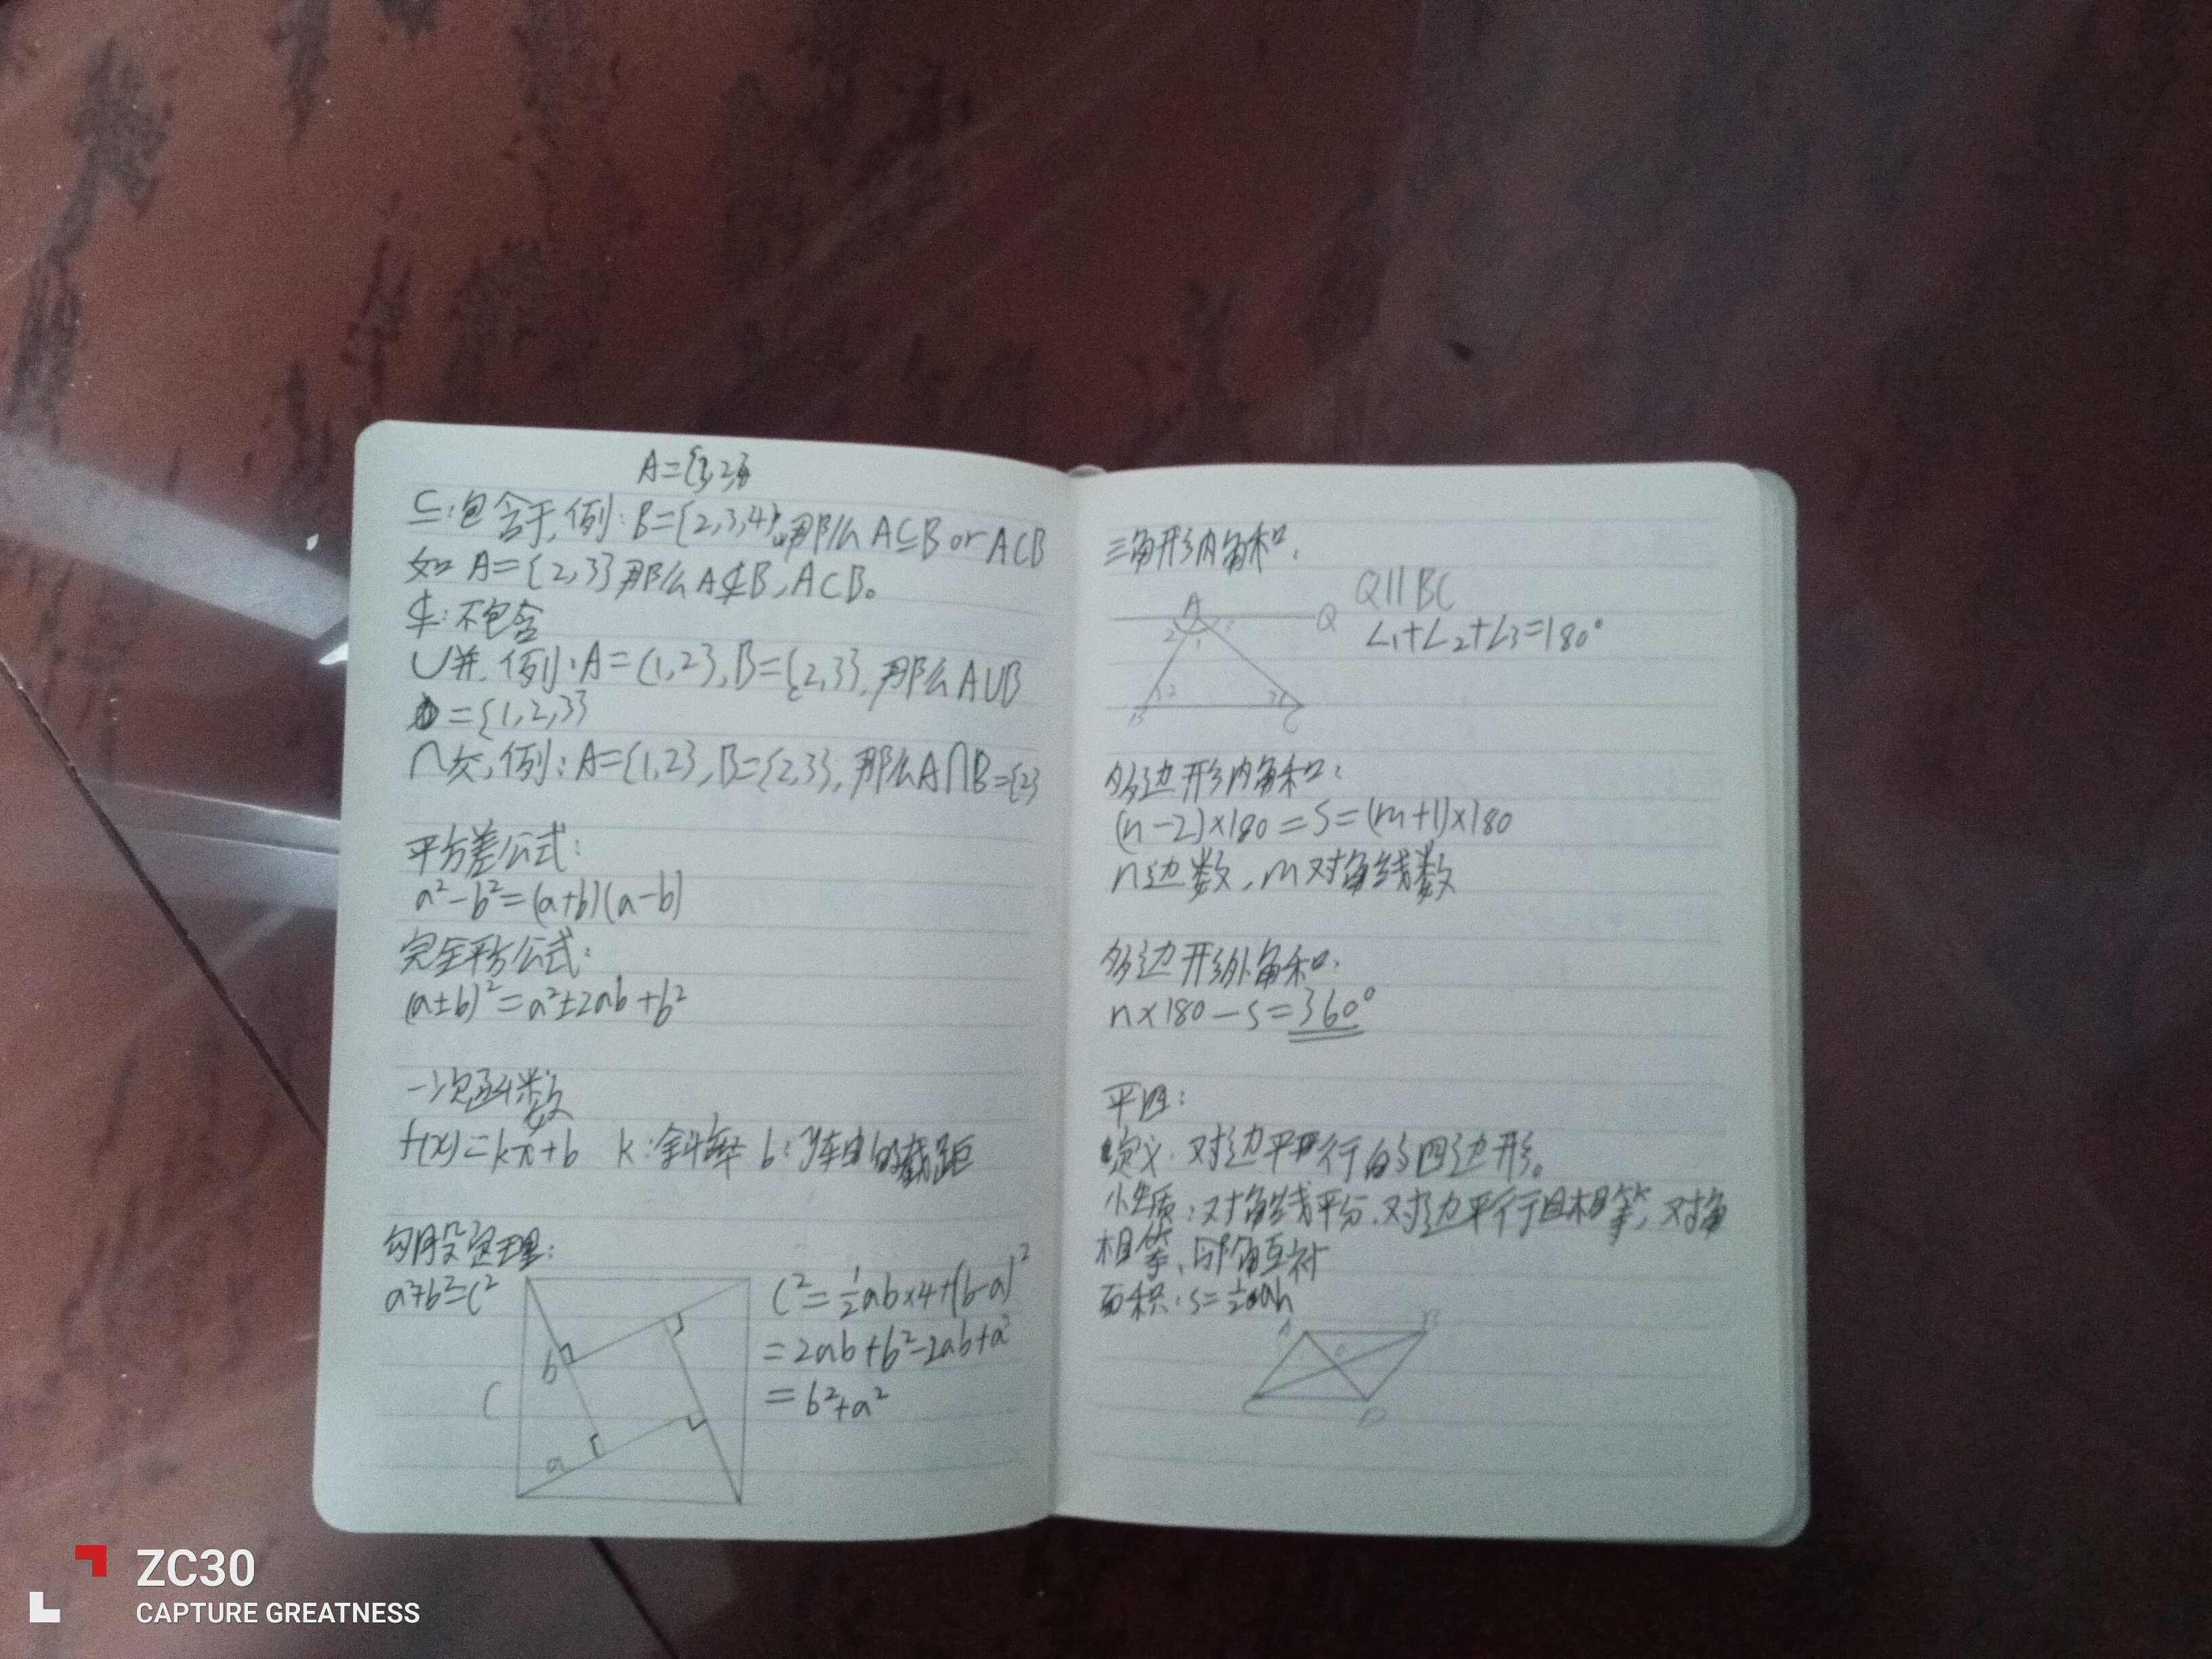 A={3,2}
⊆:包含于,例:B={2,3,4},那么A⊆B or A⊂B
如 A={2,3}那么A⊄B,A⊂B。
⊄:不包含
∪并,例:A={1,2},B={2,3},那么A∪B
={1,2,3}
∩交,例:A={1,2},B={2,3},那么A∩B={2}
平方差公式:
a²-b²=(a+b)(a-b)
完全平方公式:
(a±b)²=a²±2ab+b²
一次函数
f(x)=kx+b k:斜率 b:y轴的截距
勾股定理:
a²+b²=c²
C²=½ab×4+(b-a)²
=2ab+b²-2ab+a²
=b²+a²
b
C
a
三角形内角和:
A
Q
Q∥BC
∠1+∠2+∠3=180°
2
1
3
2
3
B
C
多边形内角和:
(n-2)×180=S=(m+1)×180
n边数,m对角线数
多边形外角和:
n×180-S=360°
平四:
定义:对边平行的四边形。
性质:对角线平分,对边平行且相等,对角
相等,邻角互补
面积:S=½ah
A
B
o
C
D
ZC30
CAPTURE GREATNESS